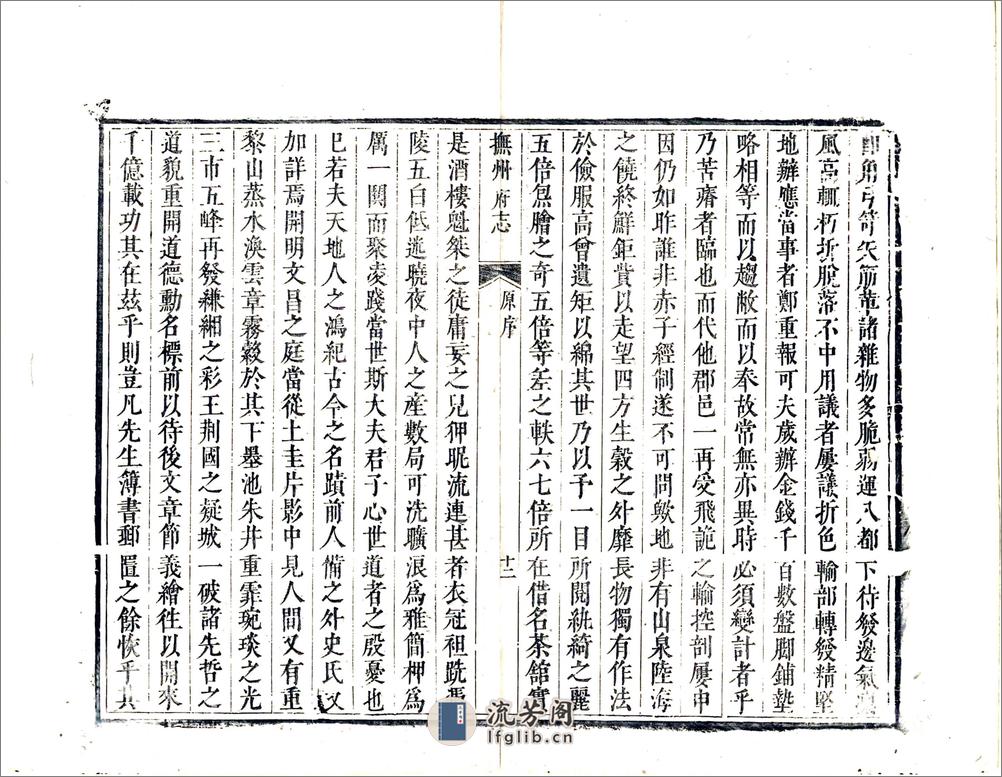 角弓笴矢筋革諸雜物多脆弱運入都下待發邊氣
風高輒朽折脫落不中用議者屢議折色輸部轉發精堅
地辦應當事者鄭重報可夫歲辦金錢千百數盤脚鋪墊
略相等而以趨敝而以奉故常無亦異時必須變計者乎
乃苦齊者臨也而代他郡邑一再受飛詭之輸控剖屢申
因仍如昨誰非赤子經制遂不可問歟地非有山泉陸海
之饒終鮮鉅貲以走望四方生穀之外靡長物獨有作法
於儉服高曾遺矩以綿其世乃以予一目所閱紈綺之麗
五倍炰膾之奇五倍等差之軼六七倍所在借名茶館實
撫州府志
原序
十二
是酒樓魁桀之徒庸妄之兒狎昵流連甚者衣冠袒跣馮
陵五白低迷曉夜中人之產數局可洗曠浪爲雅簡柙爲
厲一鬨而聚凌踐當世斯大夫君子心世道者之殷憂也
已若夫天地人之鴻紀古今之名蹟前人備之外史氏又
加詳焉開明文昌之庭當從土圭片影中見人間又有重
黎山蒸水渙雲章霧縠於其下墨池朱井重霏琬琰之光
三市五峰再發縑緗之彩王荆國之疑城一破諸先哲之
道貌重開道德勳名標前以待後文章節義繪往以開來
千億載功其在玆乎則豈凡先生簿書郵置之餘恢乎其
流芳阁
lfglib.cn